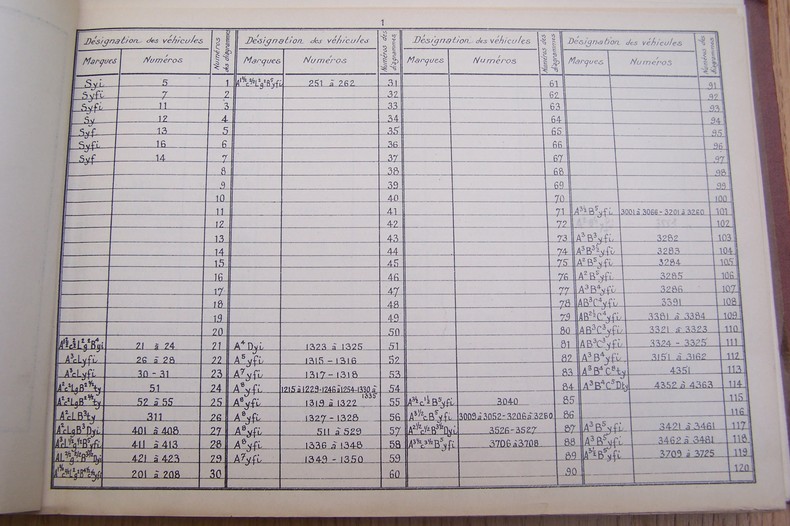 1
Désignation des véhicules Numéros des diagrammes Désignation des véhicules Numéros des diagrammes Désignation des véhicules Numéros des diagrammes Désignation des véhicules Numéros des diagrammes
Marques Numéros Marques Numéros Marques Numéros Marques Numéros
Syi 5 1 251 à 262 31 61 91
Syfi 7 2 32 62 92
Syfi 11 3 33 63 93
Sy 12 4 34 64 94
Syf 13 5 35 65 95
Syfi 16 6 36 66 96
Syf 14 7 37 67 97
8 38 68 98
9 39 69 99
10 40 70 100
11 41 71 3001 à 3066 - 3201 à 3260 101
12 42 72 102
13 43 73 A³B³yfi 3282 103
14 44 74 3283 104
15 45 75 A²B⁵yfi 3284 105
16 46 76 A²B⁵yfi 3285 106
17 47 77 A³B⁴yfi 3286 107
18 48 78 AB³C⁴yfi 3391 108
19 49 79 3381 à 3384 109
20 50 80 AB³C³yfi 3321 à 3323 110
21 à 24 21 A⁴Dyi 1323 à 1325 51 81 AB³C³yfi 3324 - 3325 111
A³cLyfi 26 à 28 22 A⁵yfi 1315 - 1316 52 82 A³B⁴yfi 3151 à 3162 112
A³cLyfi 30 - 31 23 A⁷yfi 1317 - 1318 53 83 4351 113
51 24 A⁸yfi 1215 à 1229-1246 à 1254-1330 à 1335 54 84 4352 à 4363 114
52 à 55 25 A⁸yfi 1319 à 1322 55 3040 85 115
A²cLB³ty 311 26 A⁸yfi 1327 - 1328 56 3009 à 3052 - 3206 à 3260 86 116
401 à 408 27 A⁸yfi 511 à 529 57 3526 - 3527 87 A³B⁵yfi 3421 à 3461 117
411 à 413 28 A⁸yfi 1336 à 1348 58 3706 à 3708 88 A³B⁵yfi 3462 à 3481 118
421 à 423 29 A⁷yfi 1349 - 1350 59 89 3709 à 3725 119
201 à 208 30 60 90 120